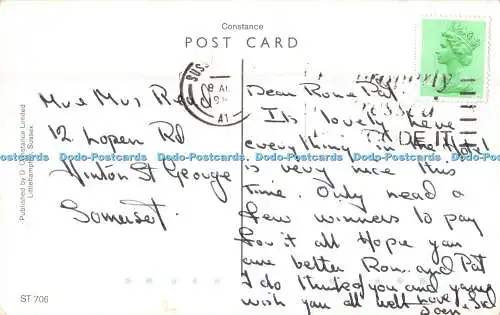 Constance
POST CARD
Published by D. Constance Limited
Littlehampton, Sussex
SUSS
8 AU
A1
Mr & Mrs Read
12 Lopen Rd
Hinton St George
Somerset.
Dear Ron & Pat.
Its lovely here
everything in the Hotel
Dodo-Postcards Dodo-Postcards Dodo-Postcards Dodo-Postcards Dodo-Postcards Dodo-Postcards
is very nice this
time. Only need a
few winners to pay
for it all Hope you
are better Ron. and Pat
I do think of you and
wish you all well Love
Doen, Sid
ST 706